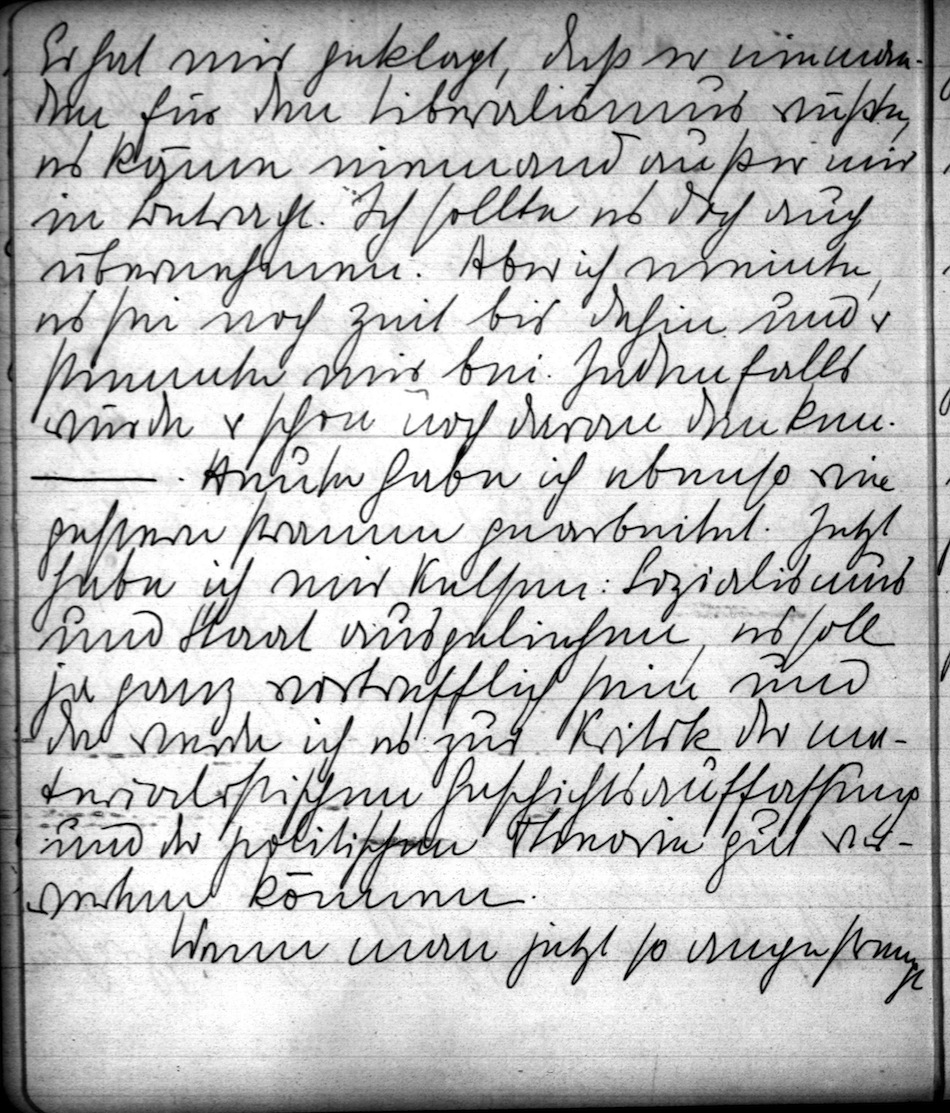 Er hat mir geklagt, daß er nieman-
den für den Liberalismus wüßte,
es käme niemand außer mir
in Betracht. Ich sollte es doch auch
übernehmen. Aber ich meinte,
es sei noch Zeit bis dahin und er
stimmte mir bei. Jedenfalls
würde er schon noch daran denken.
——— . Heute habe ich ebenso wie
gestern stramm gearbeitet. Jetzt
habe ich mir Kelsen: Sozialismus
und Staat ausgeliehen, es soll
ja ganz vortrefflich sein und
da werde ich es zur Kritik der ma-
terialistischen Geschichtsauffassung
und der politischen Theorie gut ver-
werten können.
Wenn man jetzt so angestrengt